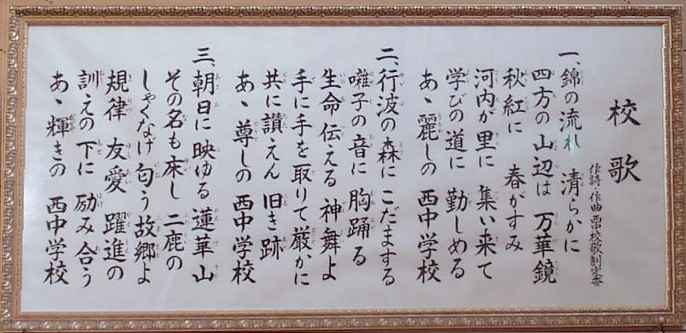 校歌
作詞・作曲 西中校歌制定委
一、錦の流れ 清らかに
四方の山辺は 万華鏡
秋紅に 春がすみ
河内が里に 集い来て
学びの道に 勤しめる
あゝ麗しの 西中学校
二、行波の森に こだまする
囃子の音に 胸踊る
生命伝える 神舞よ
手に手を取りて 厳かに
共に讃えん 旧き跡
あゝ尊しの 西中学校
三、朝日に映ゆる 蓮華山
その名も床し 二鹿の
しゃくなげ匂う 故郷よ
規律 友愛 躍進の
訓えの下に 励み合う
あゝ輝きの 西中学校